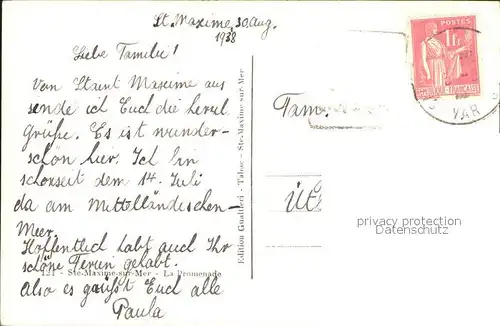 St. Maxime, 30 Aug.
1938
Liebe Familie!
Von Staint Maxime aus
sende ich Euch die herzl
Grüße. Es ist wunder-
schön hier. Ich bin
schonseit dem 14. Juli
da am Mittelländischen-
Meer.
Hoffentlich habt auch Ihr
schöne Ferien gehabt.
121 - Ste-Maxime-sur-Mer - La Promenade
Also es grüßt Euch alle
Paula
Edition Gualtieri - Tabac - Ste-Maxime-sur-Mer
POSTES
1F
FRANÇAISE
VAR
Fam.
privacy protection
Datenschutz